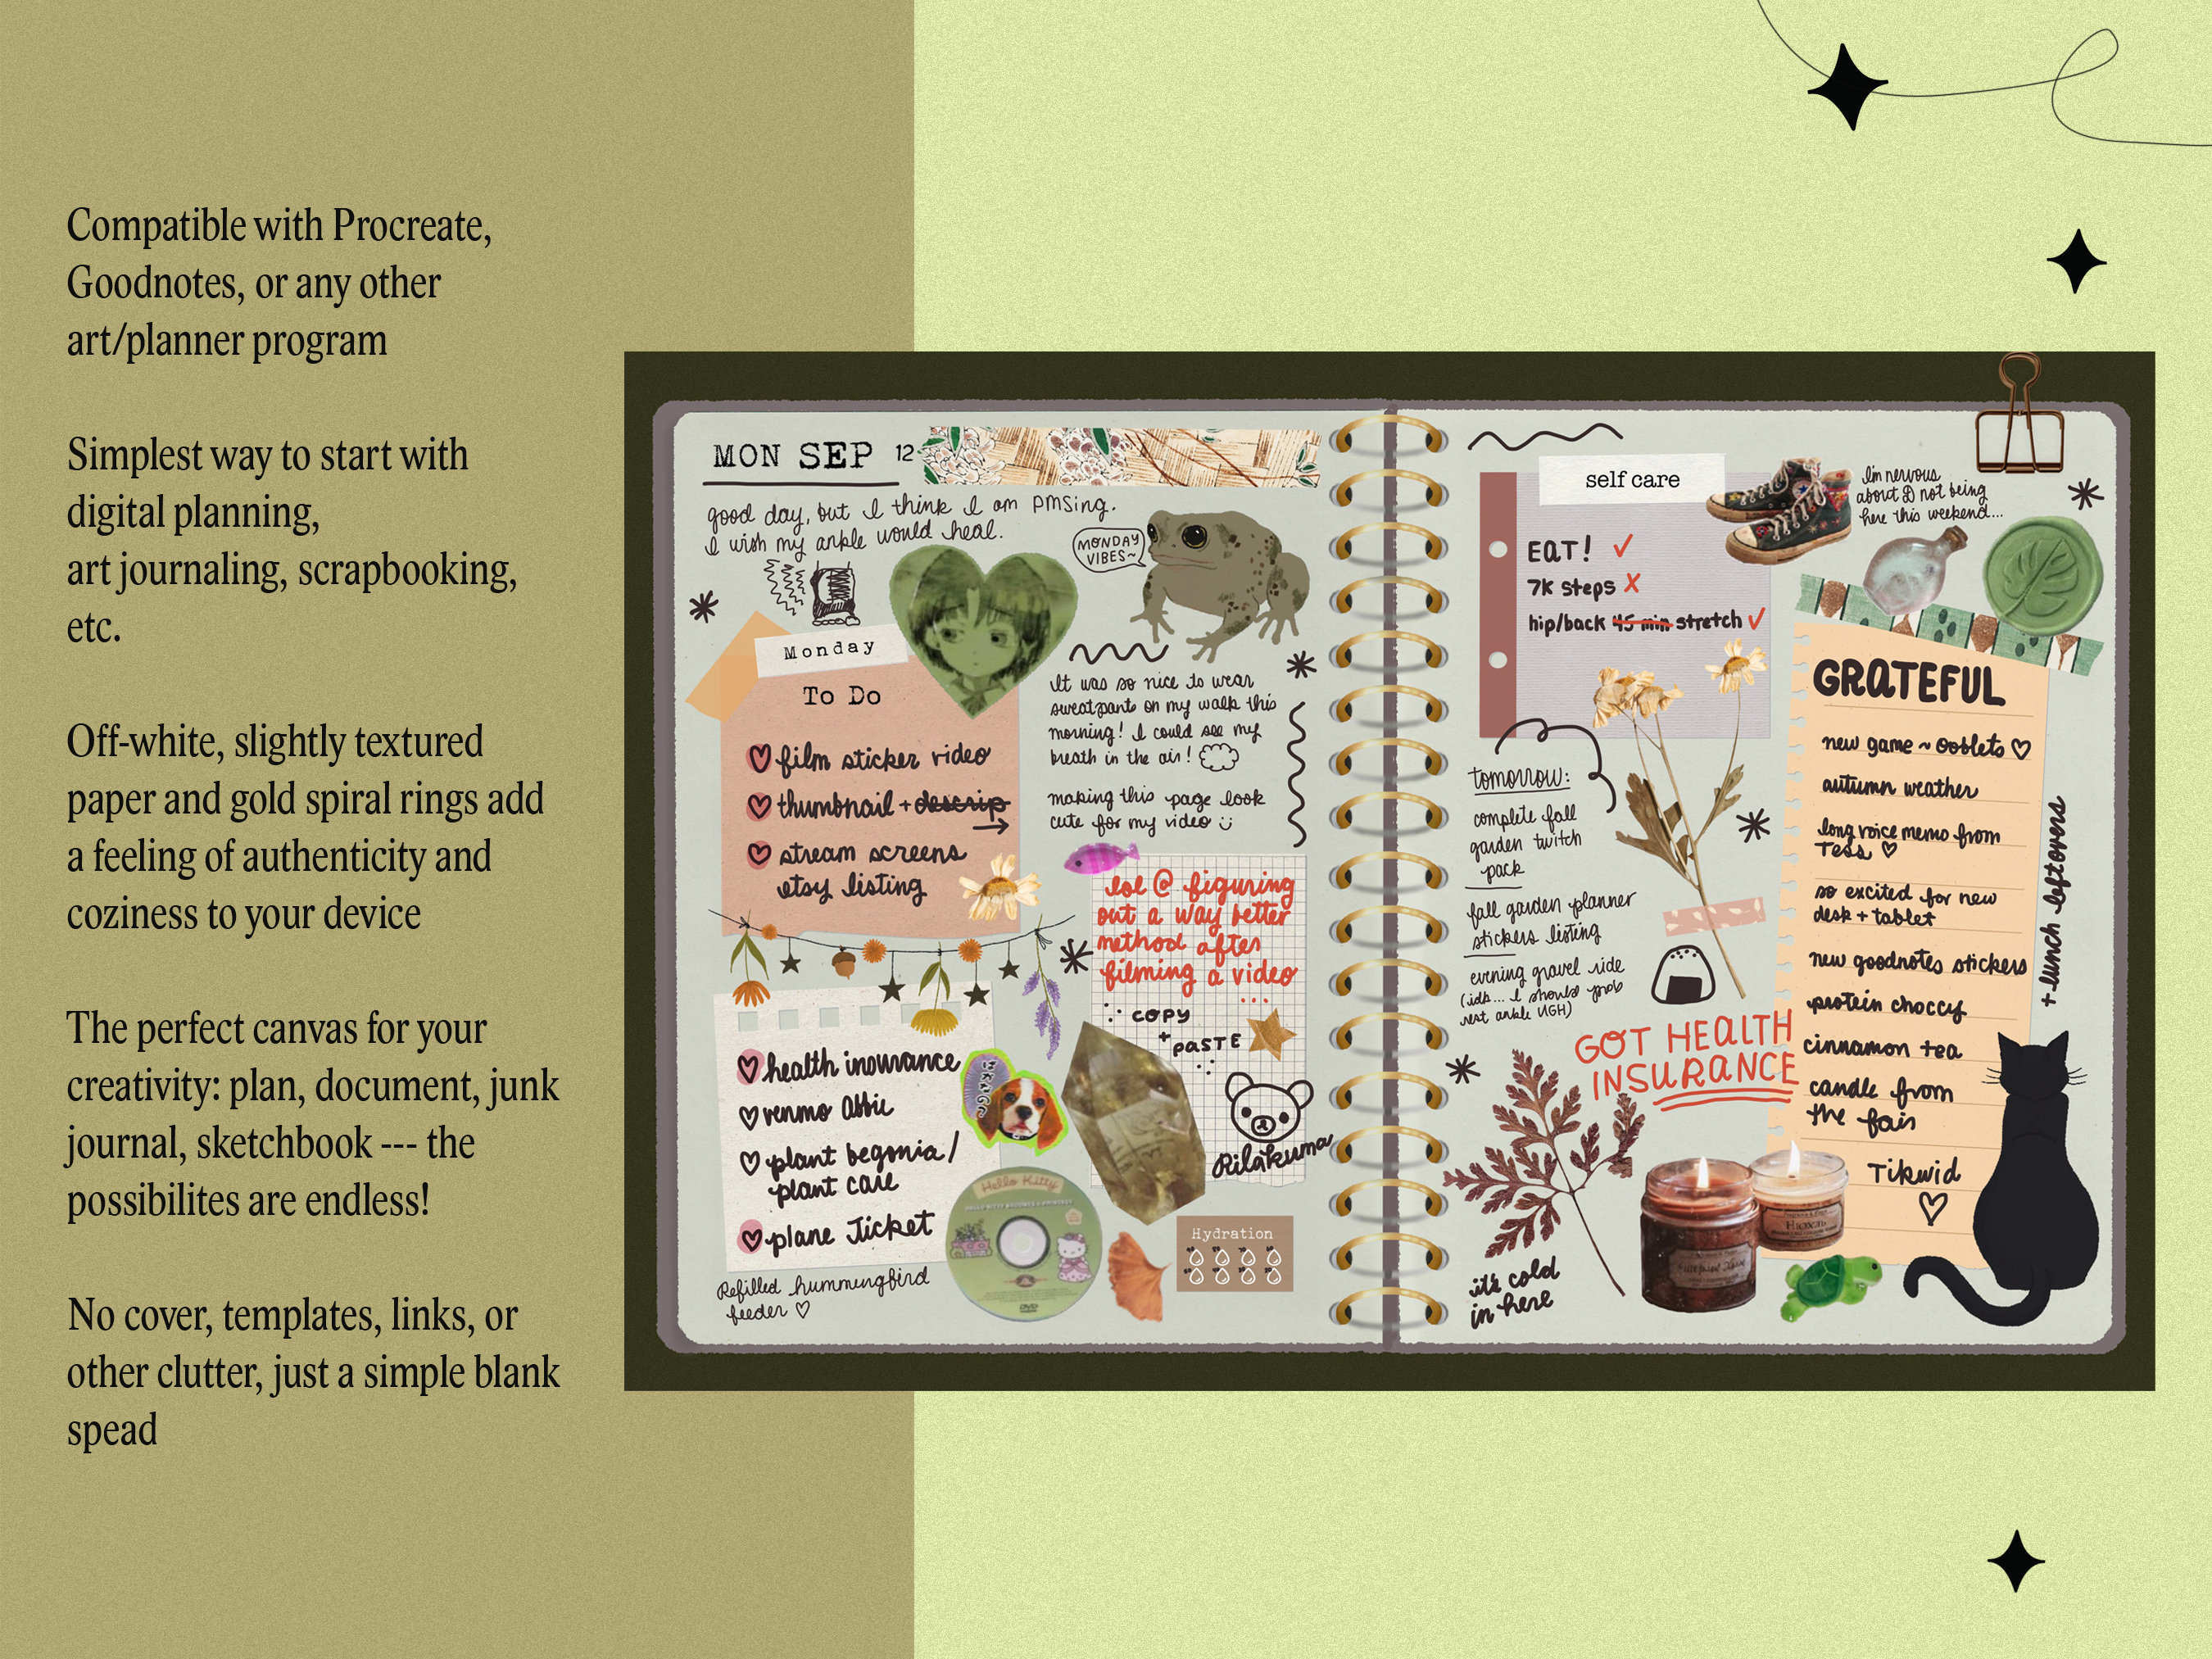 Compatible with Procreate,
Goodnotes, or any other
art/planner program
Simplest way to start with
digital planning,
art journaling, scrapbooking,
etc.
Off-white, slightly textured
paper and gold spiral rings add
a feeling of authenticity and
coziness to your device
The perfect canvas for your
creativity: plan, document, junk
journal, sketchbook --- the
possibilites are endless!
No cover, templates, links, or
other clutter, just a simple blank
spead
MON SEP 12
good day, but I think I am PMSing.
I wish my ankle would heal.
MONDAY
VIBES~
Monday
To Do
film sticker video
thumbnail + descrip
stream screens
etsy listing
It was so nice to wear
sweatpants on my walk this
morning! I could see my
breath in the air!
making this page look
cute for my video
lol @ figuring
out a way better
method after
filming a video
...
COPY
+ PASTE
Rilakuma
health insurance
venmo Abbie
plant begonia/
plant care
plane Ticket
Refilled hummingbird
feeder
Hello Kitty
DVD
Hydration
self care
EAT!
7K steps
hip/back 45 min stretch
I'm nervous
about D not being
here this weekend...
tomorrow:
complete fall
garden twitch
pack
fall garden planner
stickers listing
evening gravel ride
(idk... I should prob
rest ankle UGH)
GOT HEALTH
INSURANCE
it's cold
in here
GRATEFUL
new game ~ Ooblets
autumn weather
long voice memo from
Tess
so excited for new
desk + tablet
new goodnotes stickers
protein choccy
cinnamon tea
candle from
the fair
Tikwid
+ lunch leftovers